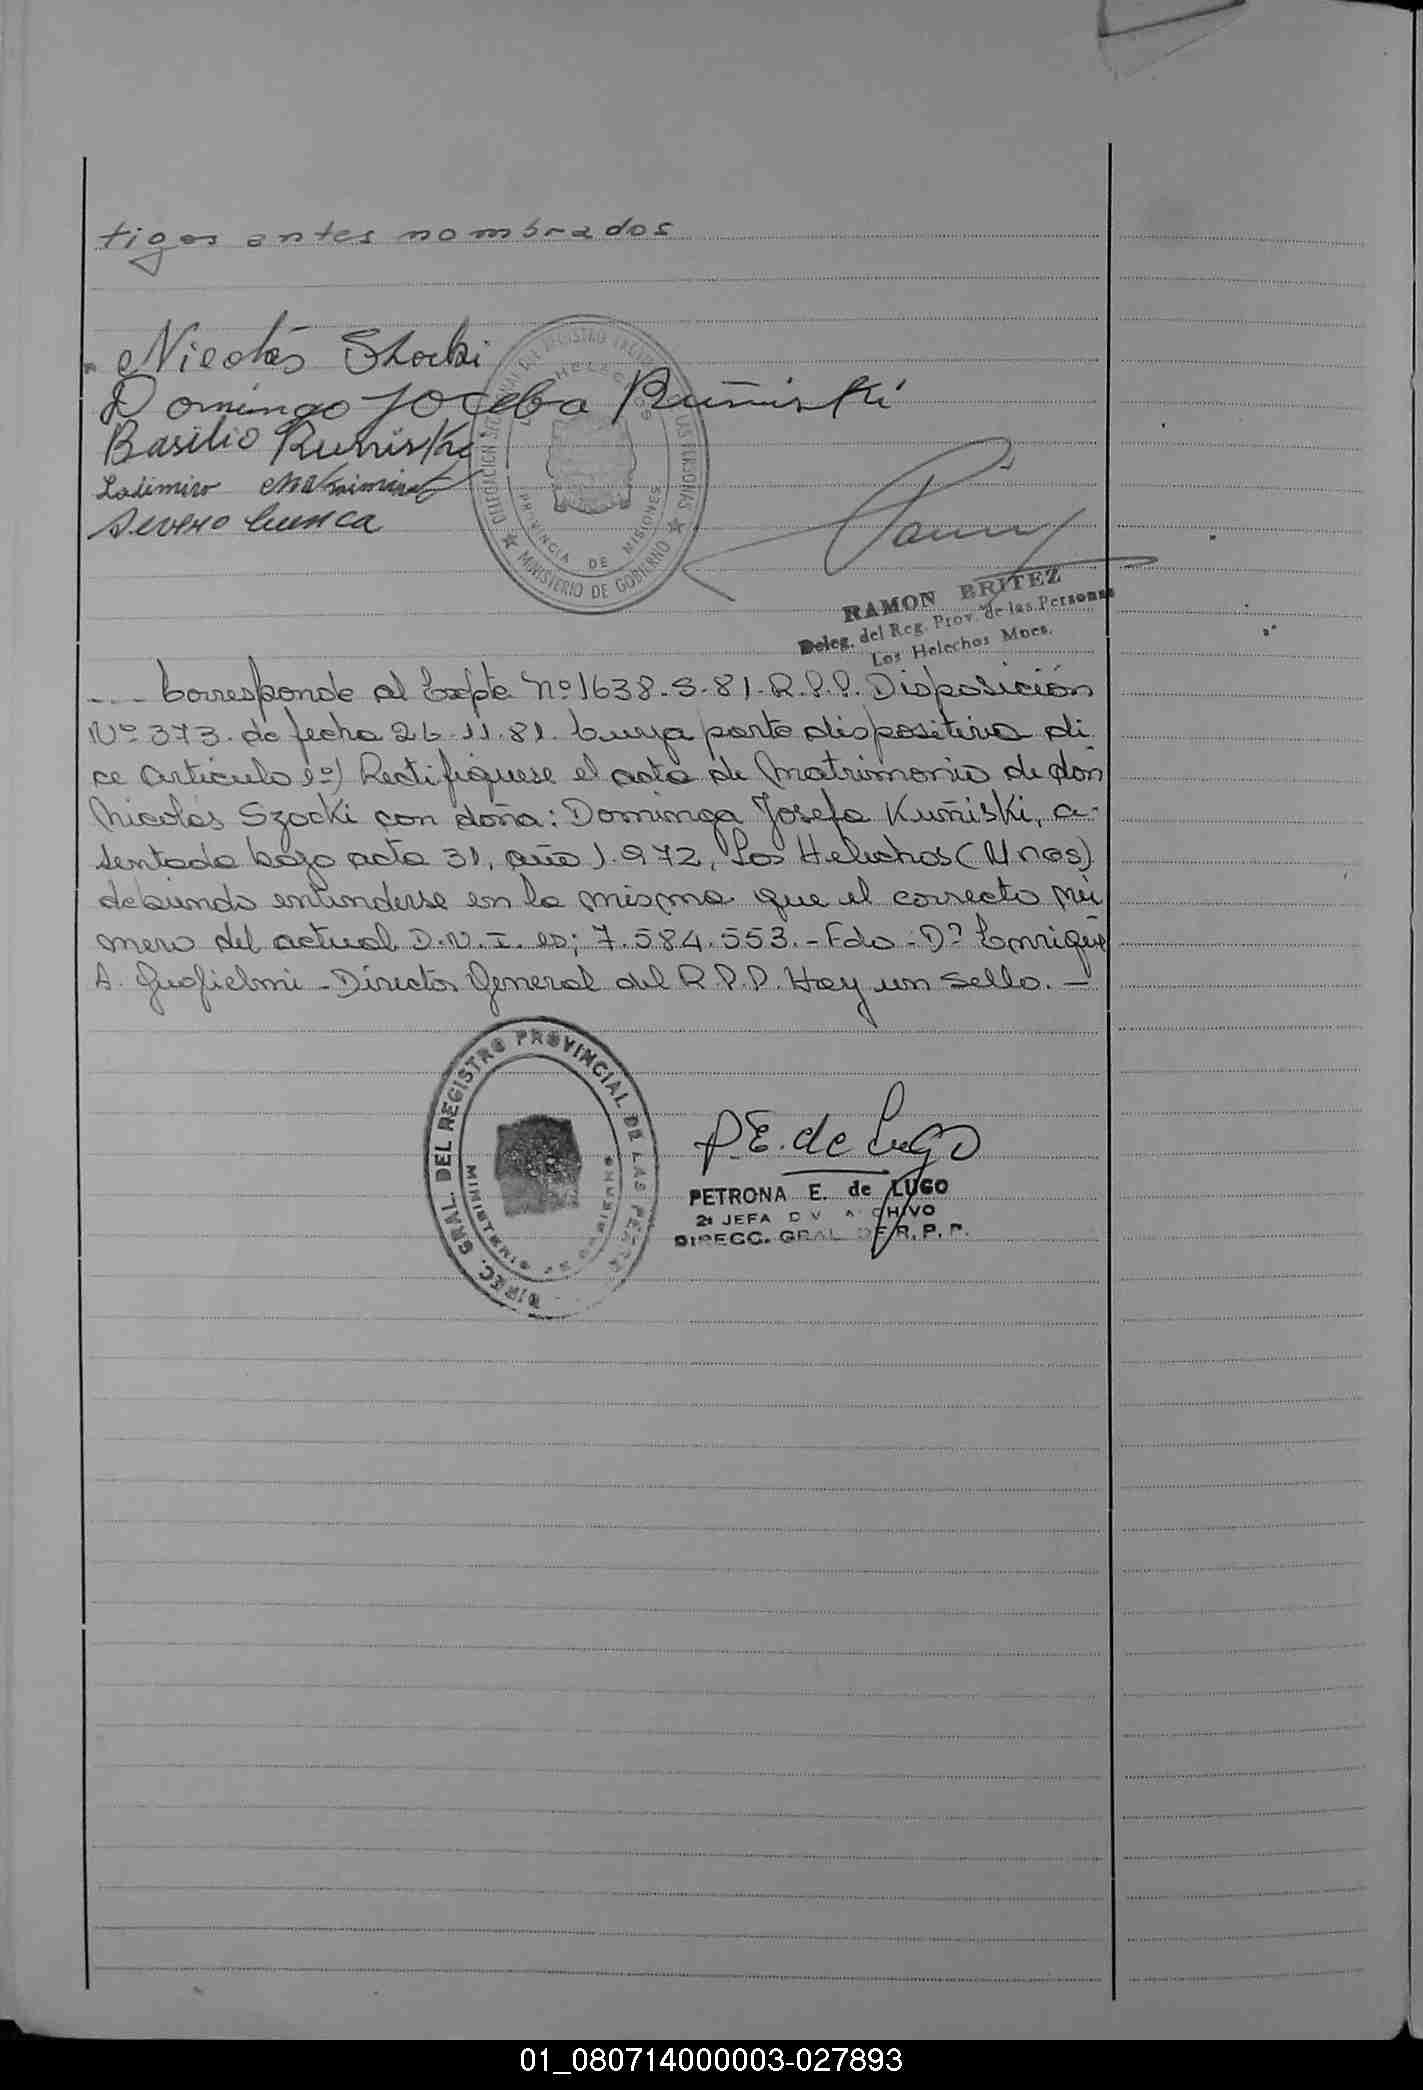 tigos antes nombrados
Nicolás Szocki
Domingo Joceba Kuñiski
Basilio Kuñiski
Ladimiro
Severo Cuenca
DELEGACION SECCIONAL DEL REGISTRO PROVINCIAL DE LAS PERSONAS
LOS HELECHOS
PROVINCIA DE MISIONES
MINISTERIO DE GOBIERNO
RAMON BRITEZ
Deleg. del Reg. Prov. de las Personas
Los Helechos Mnes.
--- Corresponde al Expte Nº 1638-S-81-R.P.P. Disposición
Nº 373. de fecha 26-11-81. Cuya parte dispositiva di
ce Artículo 1º) Rectifíquese el acta de Matrimonio de don
Nicolás Szocki con doña: Dominga Josefa Kuñiski, a-
sentada bajo acta 31, año 1.972, Los Helechos (Mnes)
debiendo entenderse en la misma que el correcto nú
mero del actual D.N.I. es; 7.584.553.- Fdo: Dº Enrique
A. Guglielmi - Director General del R.P.P. Hay un sello. -
DIREC. GRAL. DEL REGISTRO PROVINCIAL DE LAS PERS.
MINISTERIO DE GOBIERNO
P.E. de Lugo
PETRONA E. de LUGO
2ª JEFA DIV ARCHIVO
DIRECC. GRAL DE R. P. P.
01_080714000003-027893